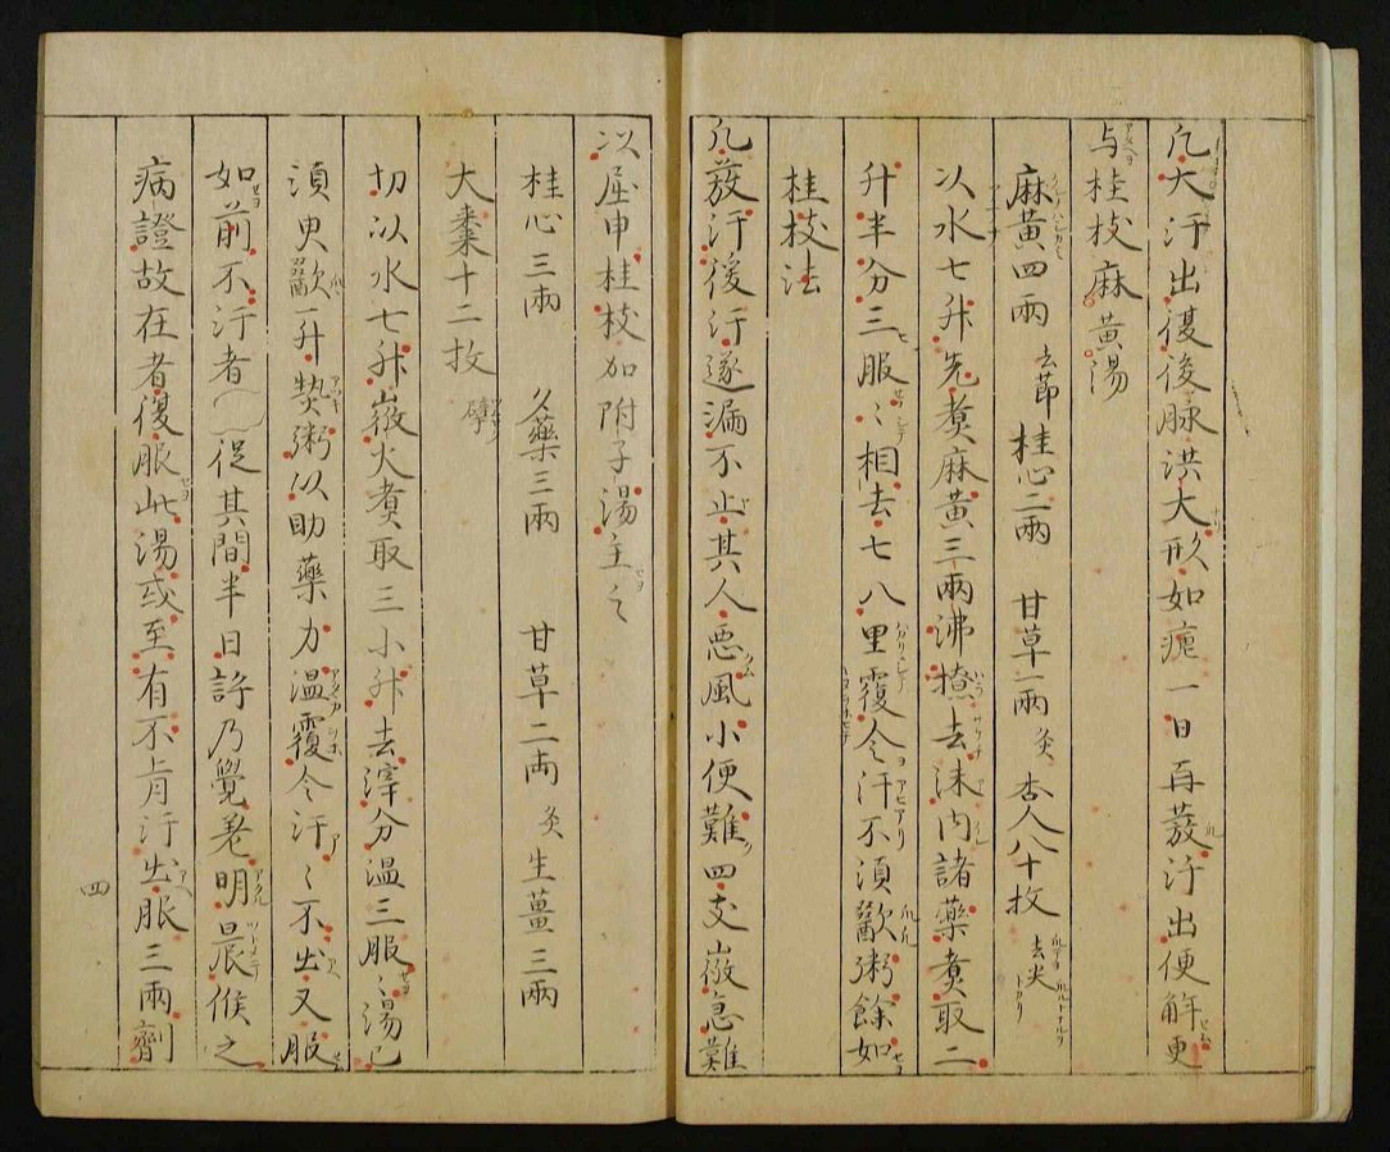 凡大汗出復後脉洪大形如瘧一日再蕟汗出便解更
与桂枝麻黄湯
麻黄四兩去節 桂心二兩 甘草一兩炙 杏人八十枚去尖
以水七升先煑麻黄三兩沸撩去沫内諸藥煑取二
升半分三服〻相去七八里覆令汗不須歠粥餘如
桂枝法
凡蕟汗後汗遂漏不止其人惡風小便難四支微急難
以屈申桂枝加附子湯主之
桂心三兩 夕藥三兩 甘草二両炙 生薑三兩
大棗十二枚擘
切以水七升微火煑取三小升去滓分温三服〻湯已
須臾歠一升𤍠粥以助藥力温覆令汗〻不出又服
如前不汗者促其間半日許乃覺著明晨候之
病證故在者復服此湯或至有不肯汗出服三兩劑
四